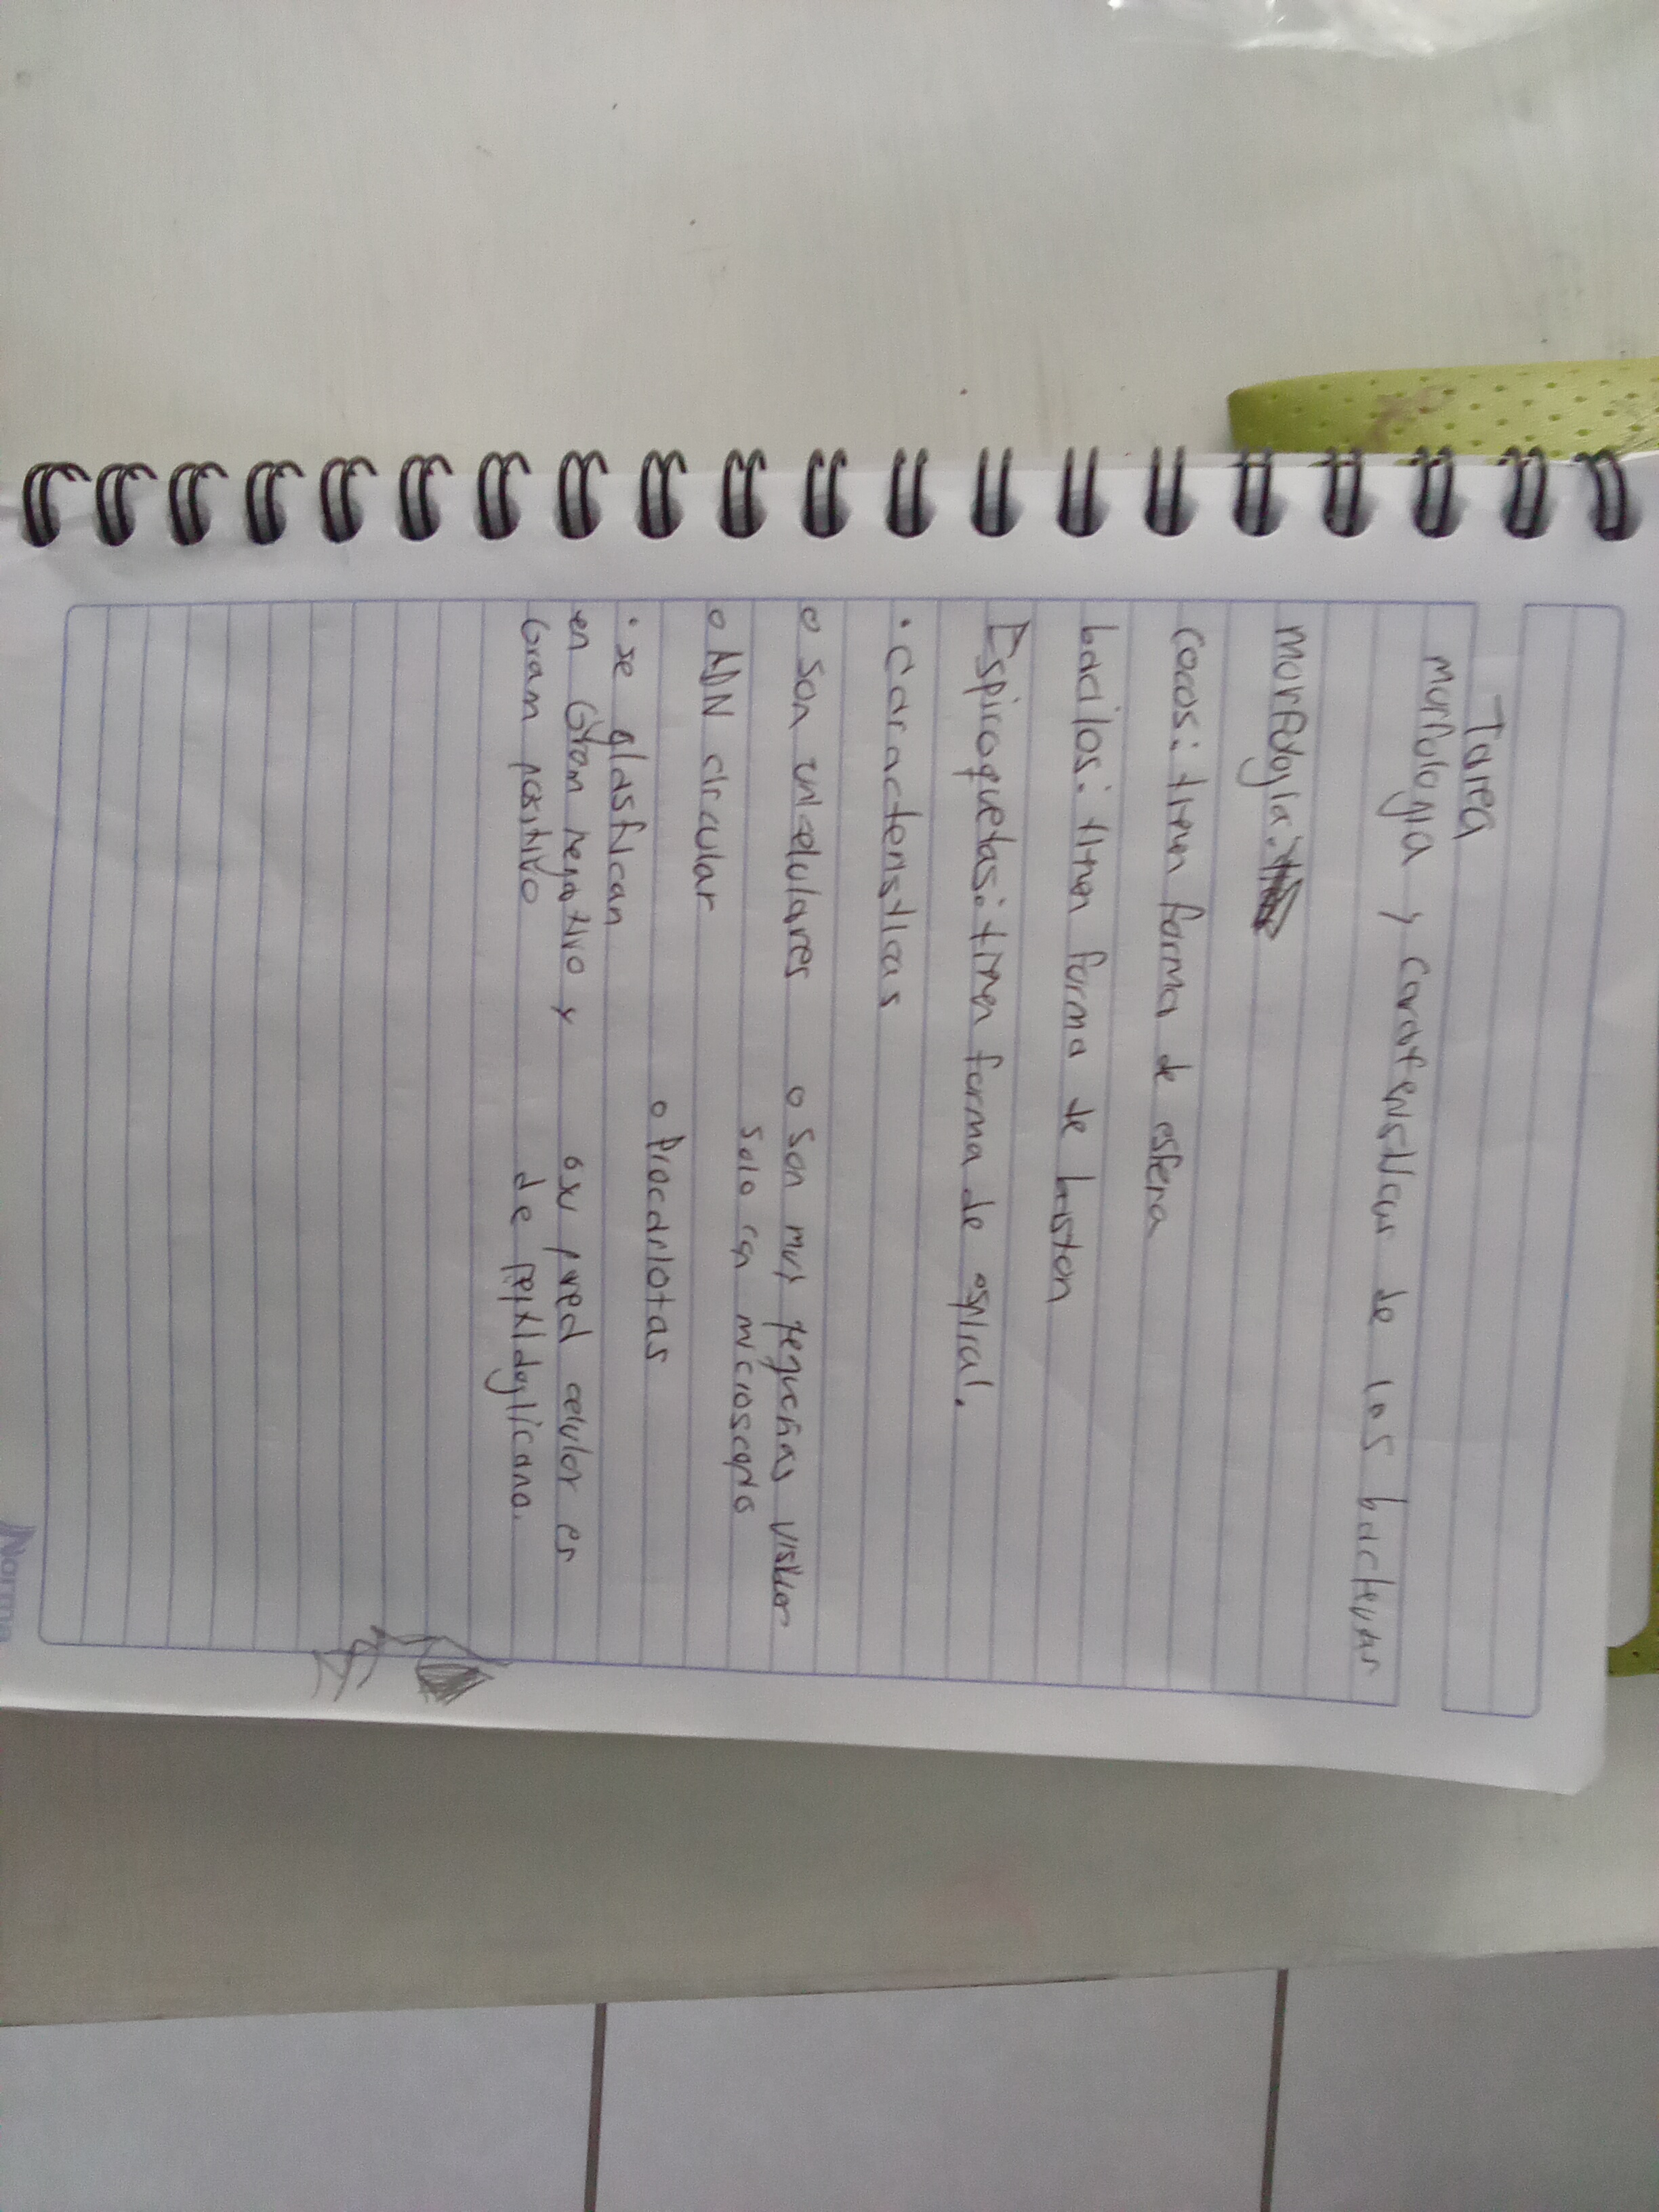 Tarea
morfología y características de las bacterias
morfología:
cocos: tienen forma de esfera
bacilos: tienen forma de baston
Espiroquetas: tienen forma de espiral.
• Características
o Son unicelulares
o Son muy pequeñas visibles
solo con microscopio
o ADN circular
o Procariotas
• se clasifican
en Gram negativo y
Gram positivo
o su pared celular es
de peptidoglicano.
Norma